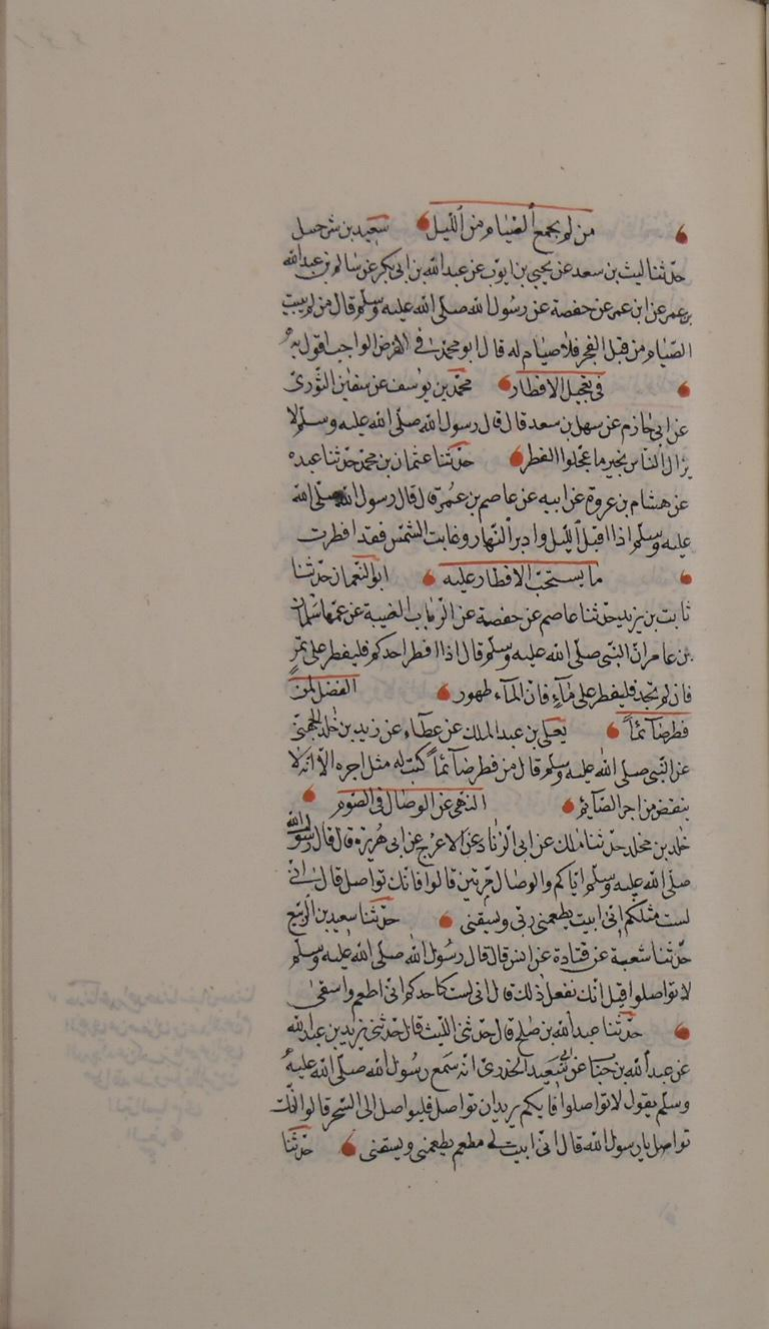 من لم يجمع الصيام من الليل سعيد بن شرحبيل
حدثنا ليث بن سعد عن يحيى بن ايوب عن عبد الله بن ابى بكر عن سالم بن عبد الله
بن عمر عن ابن عمر عن حفصة عن رسول الله صلى الله عليه وسلم قال من لم يبيت
الصيام من قبل الفجر فلا صيام له قال ابو محمد فى الفرض الواجب اقول به
فى تعجيل الافطار محمد بن يوسف عن سفين الثورى
عن ابى حازم عن سهل بن سعد قال قال رسول الله صلى الله عليه وسلم لا
يزال الناس بخير ما عجلوا الفطر حدثنا عثمان بن محمد حدثنا عبده
عن هشام بن عروة عن ابيه عن عاصم بن عمر قال قال رسول الله صلى الله
عليه وسلم اذا اقبل الليل وادبر النهار وغابت الشمس فقد افطرت
ما يستحب الافطار عليه ابو النعمان حدثنا
ثابت بن يزيد حدثنا عاصم عن حفصة عن الرباب الضبية عن عمها سلمان
بن عامر ان النبى صلى الله عليه وسلم قال اذا افطر احدكم فليفطر على تمر
فان لم يجد فليفطر على ماء فان الماء طهور الفضل لمن
فطر صائما يعلى بن عبد الملك عن عطاء عن زيد بن خلد الجهنى
عن النبى صلى الله عليه وسلم قال من فطر صائما كتب له مثل اجره الا انه لا
ينقص من اجر الصائم النهى عن الوصال فى الصوم
خلد بن مخلد حدثنا ملك عن ابى الزناد عن الاعرج عن ابى هريرة قال قال رسول الله
صلى الله عليه وسلم اياكم والوصال مرتين قالوا فانك تواصل قال انى
لست مثلكم انى ابيت يطعمنى ربى ويسقنى حدثنا سعيد بن الربيع
حدثنا شعبة عن قتادة عن انس قال قال رسول الله صلى الله عليه وسلم
لا تواصلوا قيل انك تفعل ذلك قال انى لست كاحدكم انى اطعم واسقى
حدثنا عبد الله بن صلح قال حدثنى الليث قال حدثنى يزيد بن عبد الله
عن عبد الله بن خباب عن ابى سعيد الخدرى انه سمع رسول الله صلى الله عليه
وسلم يقول لا تواصلوا فايكم يريد ان تواصل فليواصل الى السحر قالوا انك
تواصل يا رسول الله قال انى ابيت لى مطعم يطعمنى ويسقنى حدثنا